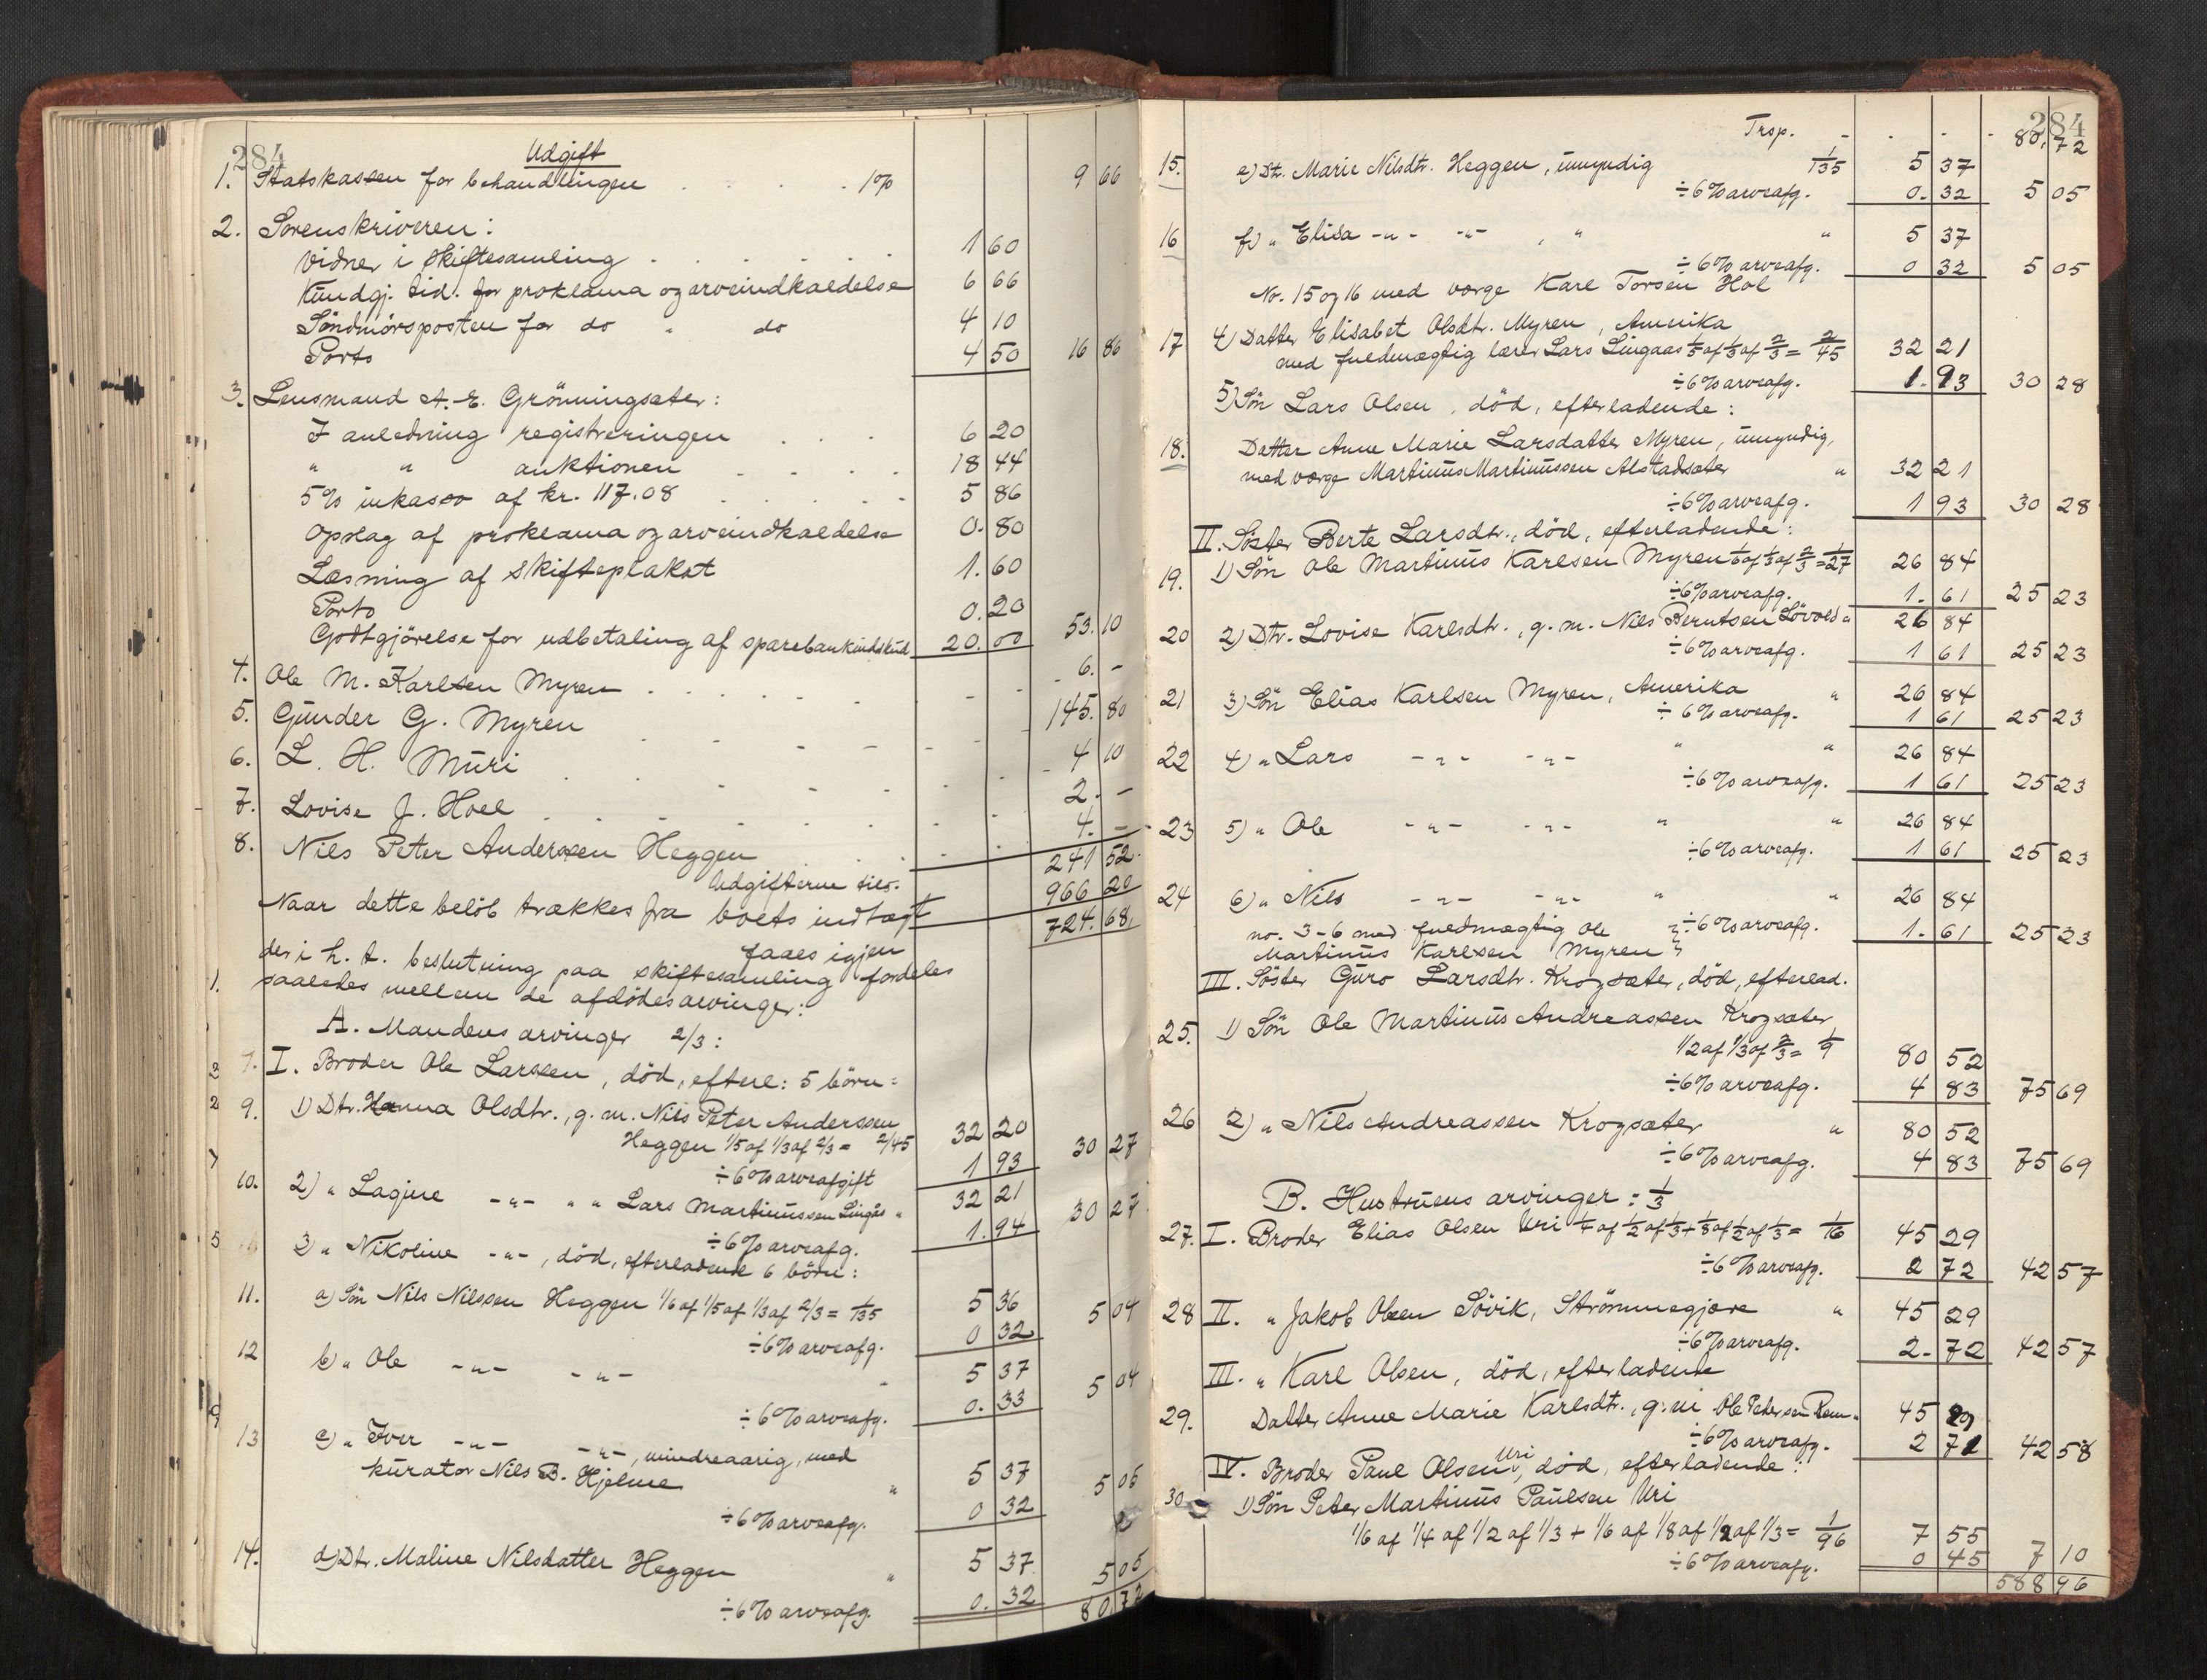 284
Udgift
1. Statskassen for behandlingen . . . . 1% 9 66
2. Sorenskriveren:
Vidner i skiftesamling . . . . 1 60
Kundgj. tid. for proklama og arveindkaldelse 6 66
Söndmörsposten for do " do 4 10
Porto 4 50 16 86
3. Lensmand A. E. Grönningsæter:
I anledning registreringen . . . 6 20
" " auktionen . . . . 18 44
5% inkasso af kr. 117.08 . . . . . 5 86
Opslag af proklama og arveindkaldelse 0. 80
Læsning af skifteplakat 1. 60
Porto 0. 20
Godtgjörelse for udbetaling af sparebankindskud 20. 00 53. 10
4. Ole M. Karlsen Myren . . . . 6. -
5. Gunder G. Myren 145. 80
6. L. H. Muri 4 10
7. Lovise J. Hoel 2. -
8. Nils Peter Anderssen Heggen 4. -
Udgifterne tils. 241 52
Naar dette belöb trækkes fra boets indtægt 966 20
faaes igjen 724. 68
der i h. t. beslutning paa skiftesamling fordeles
saaledes mellem de afdödes arvinger:
A. Mandens arvinger 2/3:
I. Broder Ole Larssen, död, efterl: 5 börn:
9. 1) Dtr. Hanna Olsdtr., g. m. Nils Peter Anderssen
Heggen 1/5 af 1/3 af 2/3 = 2/45 32 20
÷ 6% arveafgift 1 93 30 27
10. 2) " Lagine -"- " " Lars Martinussen Lingås " 32 21
÷ 6% arveafg. 1. 94 30 27
3) " Nikoline -"-, död, efterladende 6 börn:
11. a) Sön Nils Nilssen Heggen 1/6 af 1/5 af 1/3 af 2/3 = 1/135 5 36
÷ 6% arveafg. 0 32 5 04
12 b) " Ole -"- -"- " 5 37
÷ 6% arveafg. 0. 33 5 04
13 c) " Iver -"- -"-, mindreaarig, med
kurator Nils B. Hjelme " 5 37
÷ 6% arveafg. 0 32 5 05
14. d) Dtr. Maline Nilsdatter Heggen " 5 37
÷ 6% arveafg. 0. 32 5 05
80. 72
284
Trsp. - - - - 80, 72
15. e) Dt. Marie Nilsdtr. Heggen, umyndig 1/135 5 37
÷ 6% arveafg. 0. 32 5 05
16 f) " Elisa -"- -"-, " " 5 37
÷ 6% arveafg. 0 32 5 05
No. 15 og 16 med værge Karl Torsen Hol
17 4) Datter Elisabet Olsdtr. Myren, Amerika
med fuldmægtig lærer Lars Lingaas 1/5 af 1/3 af 2/3 = 2/45 32 21
÷ 6% arveafg. 1. 93 30 28
5) Sön Lars Olsen, död, efterladende:
18. Datter Anne Marie Larsdatter Myren, umyndig,
med værge Martinus Martinussen Alstadsæter " 32 21
÷ 6% arveafg. 1 93 30 28
II. Söster Berte Larsdtr., död, efterladende:
19. 1) Sön Ole Martinus Karlsen Myren 1/6 af 1/3 af 2/3 = 1/27 26 84
÷ 6% arveafg. 1. 61 25 23
20 2) Dtr. Lovise Karlsdtr., g. m. Nils Berntsen Lövold " 26 84
÷ 6% arveafg. 1 61 25 23
21 3) Sön Elias Karlsen Myren, Amerika " 26 84
÷ 6% arveafg. 1 61 25 23
22 4) " Lars -"- -"- " " 26 84
÷ 6% arveafg. 1 61 25 23
23 5) " Ole -"- -"- " " 26 84
÷ 6% arveafg. 1 61 25 23
24 6) " Nils -"- -"- " " 26 84
no. 3-6 med fuldmægtig Ole ÷ 6% arveafg. 1. 61 25 23
Martinus Karlsen Myren
III. Söster Guro Larsdtr. Krogsæter, död, efterlad.
25. 1) Sön Ole Martinus Andreassen Krogsæter
1/2 af 1/3 af 2/3 = 1/9 80 52
÷ 6% arveafg. 4 83 75 69
26 2) " Nils Andreassen Krogsæter " 80 52
÷ 6% arveafg. 4 83 75 69
B. Hustruens arvinger: 1/3
27. I. Broder Elias Olsen Uri 1/4 af 1/2 af 1/3 + 1/8 af 1/2 af 1/3 = 1/16 45 29
÷ 6% arveafg. 2 72 42 57
28 II. " Jakob Olsen Sövik, Strömmegjære " 45 29
÷ 6% arveafg. 2. 72 42 57
III. " Karl Olsen, död, efterladende
29. Datter Anne Marie Karlsdtr., g. m. Ole Petersen Rem " 45 29
÷ 6% arveafg. 2 71 42 58
IV. Broder Paul Olsen Uri, död, efterladende:
30 1) Sön Peter Martinus Paulsen Uri
1/6 af 1/4 af 1/2 af 1/3 + 1/6 af 1/8 af 1/2 af 1/3 = 1/96 7 55
÷ 6% arveafg. 0 45 7 10
588 96